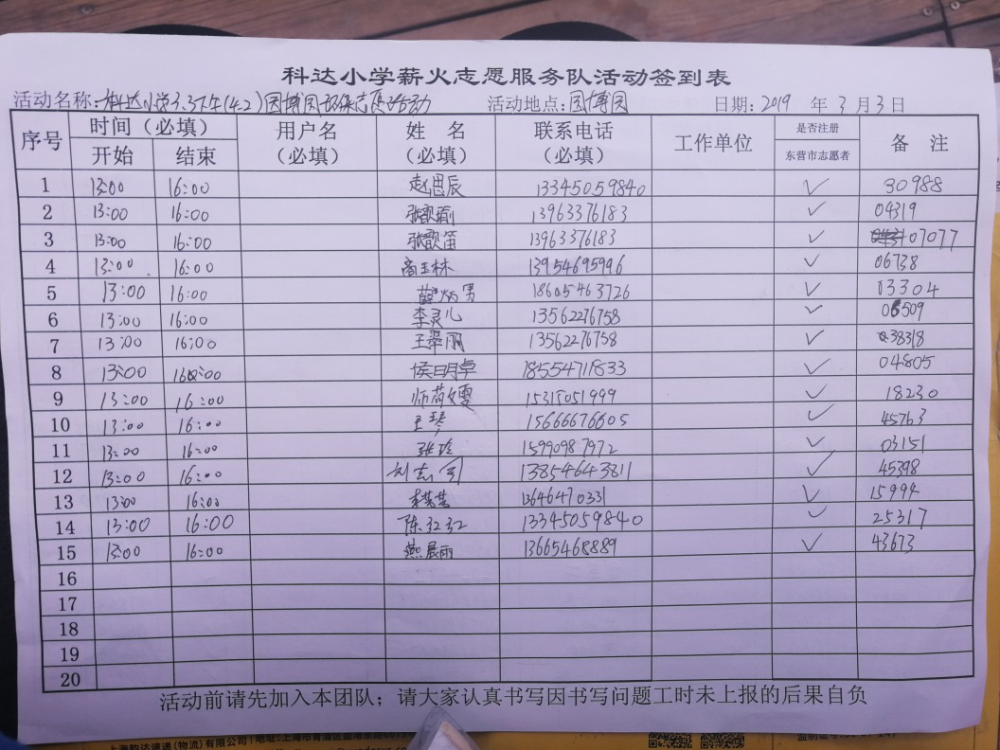 科达小学薪火志愿服务队活动签到表
活动名称：科达小学3.3下午(4.2)园博园环保志愿活动 活动地点：园博园 日期：2019 年 3 月 3 日
序号 时间（必填） 用户名（必填） 姓 名（必填） 联系电话（必填） 工作单位 是否注册 备 注
开始 结束 东营市志愿者
1 13:00 16:00 赵思辰 13345059840 ✓ 30988
2 13:00 16:00 张歆瑜 13963376183 ✓ 04319
3 13:00 16:00 张歆笛 13963376183 ✓ 07077
4 13:00 16:00 商玉林 13954695996 ✓ 06738
5 13:00 16:00 薛炳男 18605463726 ✓ 03304
6 13:00 16:00 李灵儿 13562276758 ✓ 06509
7 13:00 16:00 王翠丽 13562276758 ✓ 38318
8 13:00 16:00 侯明卓 18554711833 ✓ 04805
9 13:00 16:00 师荷雯 15315051999 ✓ 18230
10 13:00 16:00 王琴 15666676605 ✓ 45763
11 13:00 16:00 张玲 15990987972 ✓ 03151
12 13:00 16:00 刘志司 13854643811 ✓ 45398
13 13:00 16:00 13646470331 ✓ 15994
14 13:00 16:00 陈红红 13345059840 ✓ 25317
15 13:00 16:00 燕展丽 13665468889 ✓ 43673
16
17
18
19
20
活动前请先加入本团队；请大家认真书写因书写问题工时未上报的后果自负